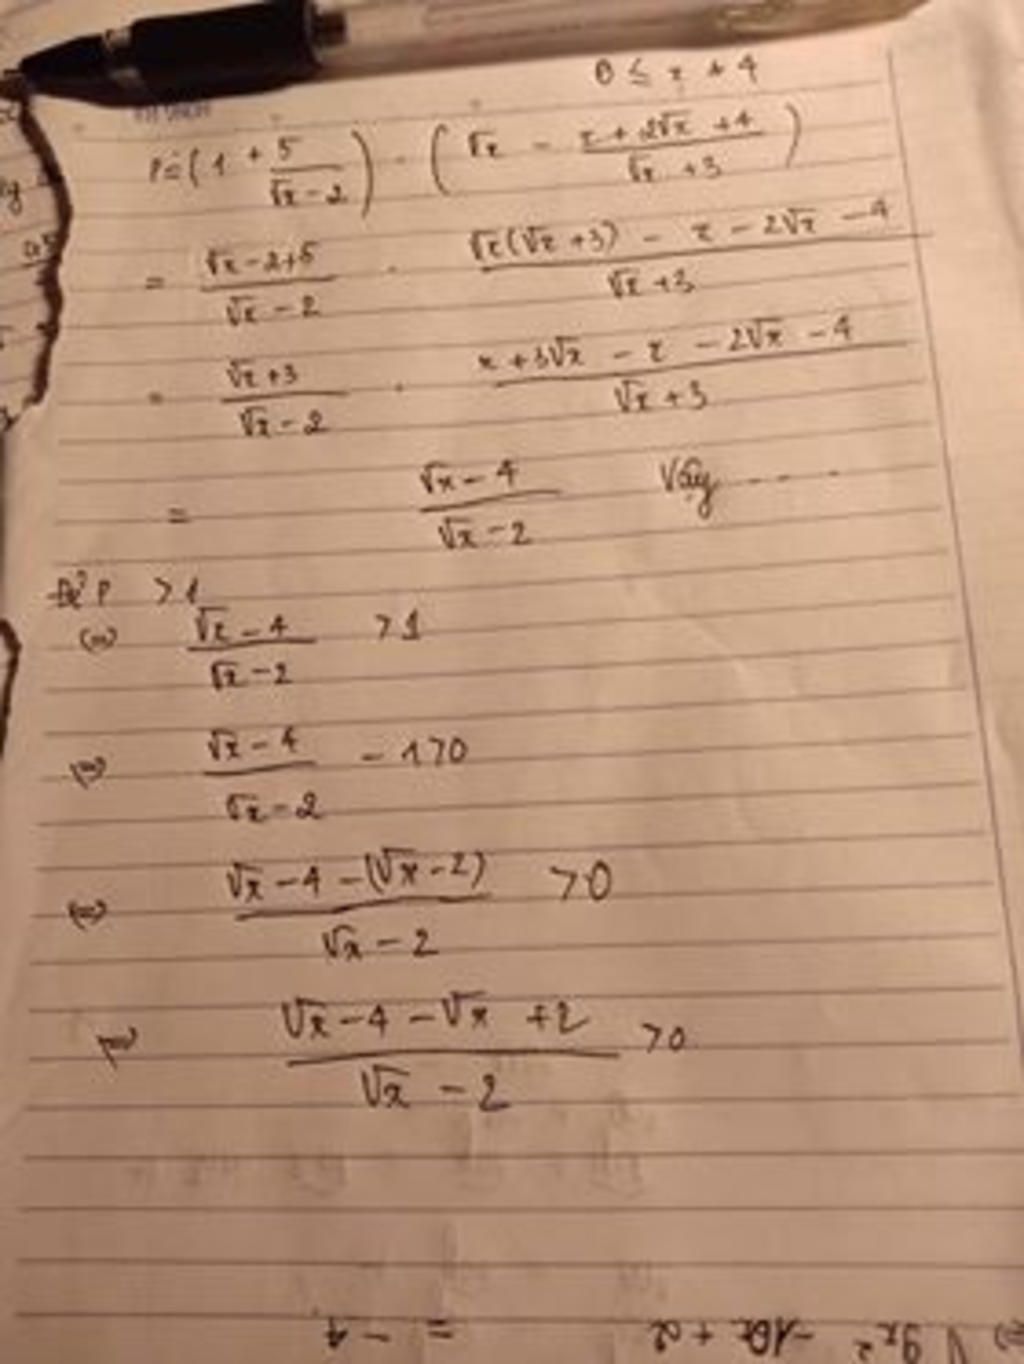 0 ≤ x ≠ 4
P = (1 + 5/(√x - 2)) . (√x - (x + 2√x + 4)/(√x + 3))
= (√x - 2 + 5)/(√x - 2) . (√x(√x + 3) - x - 2√x - 4)/(√x + 3)
= (√x + 3)/(√x - 2) . (x + 3√x - x - 2√x - 4)/(√x + 3)
= (√x - 4)/(√x - 2) Vậy ....
Để P > 1
(=) (√x - 4)/(√x - 2) > 1
(=) (√x - 4)/(√x - 2) - 1 > 0
(=) (√x - 4 - (√x - 2))/(√x - 2) > 0
(=) (√x - 4 - √x + 2)/(√x - 2) > 0